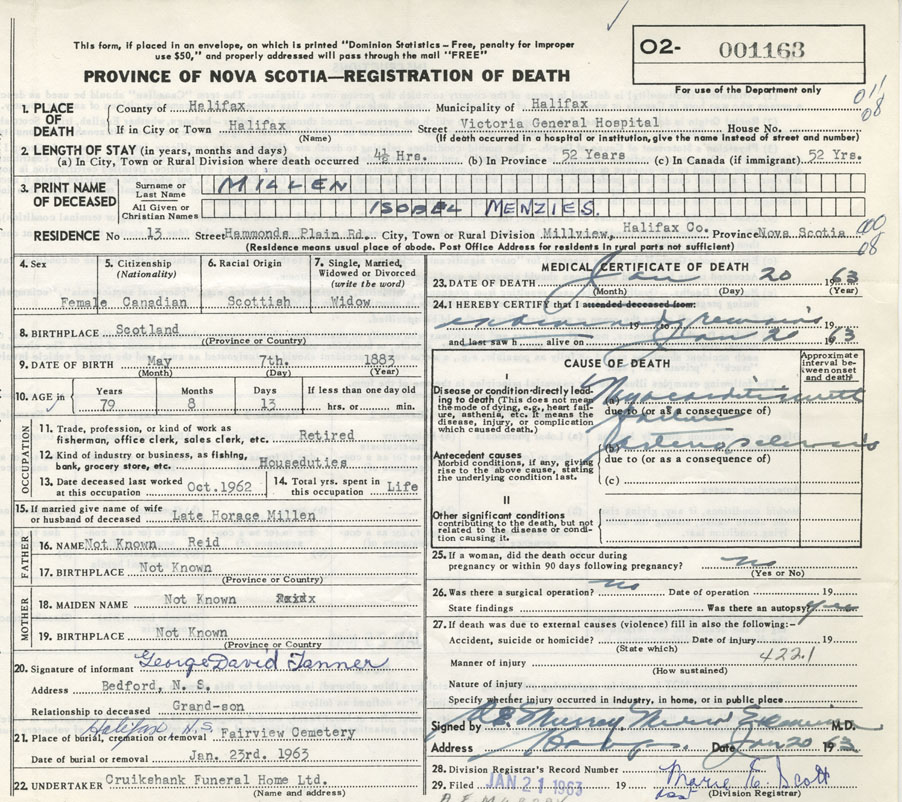 This form, if placed in an envelope, on which is printed "Dominion Statistics – Free, penalty for improper
use $50," and properly addressed will pass through the mail "FREE"
PROVINCE OF NOVA SCOTIA—REGISTRATION OF DEATH
O2- 001163
For use of the Department only
1. PLACE OF DEATH
County of Halifax Municipality of Halifax
If in City or Town Halifax Street Victoria General Hospital House No.
(Name) (If death occurred in a hospital or institution, give the name instead of street and number)
2. LENGTH OF STAY (in years, months and days)
(a) In City, Town or Rural Division where death occurred 4½ Hrs. (b) In Province 52 Years (c) In Canada (if immigrant) 52 Yrs.
3. PRINT NAME OF DECEASED
Surname or Last Name MILLEN
All Given or Christian Names ISOBEL MENZIES.
RESIDENCE No 13 Street Hammonds Plain Rd. City, Town or Rural Division Millview, Halifax Co. Province Nova Scotia
(Residence means usual place of abode. Post Office Address for residents in rural parts not sufficient)
4. Sex 5. Citizenship (Nationality) 6. Racial Origin 7. Single, Married, Widowed or Divorced (write the word)
Female Canadian Scottish Widow
8. BIRTHPLACE Scotland
((Province or Country)
9. DATE OF BIRTH May 7th. 1883
(Month) (Day) (Year)
10. AGE in Years 79 Months 8 Days 13 If less than one day old hrs. or min.
OCCUPATION
11. Trade, profession, or kind of work as
fisherman, office clerk, sales clerk, etc. Retired
12. Kind of industry or business, as fishing,
bank, grocery store, etc. Houseduties
13. Date deceased last worked at this occupation Oct.1962 14. Total yrs. spent in this occupation Life
15. If married give name of wife
or husband of deceased Late Horace Millen
FATHER
16. NAME Not Known Reid
17. BIRTHPLACE Not Known
(Province or Country)
MOTHER
18. MAIDEN NAME Not Known
19. BIRTHPLACE Not Known
(Province or Country
20. Signature of informant George David Tanner
Address Bedford, N. S.
Relationship to deceased Grand-son
Halifax N.S
21. Place of burial, cremation or removal Fairview Cemetery
Date of burial or removal Jan. 23rd. 1963
22. UNDERTAKER Cruikshank Funeral Home Ltd.
(Name and address)
MEDICAL CERTIFICATE OF DEATH
23. DATE OF DEATH Jan 20 1963
(Month) (Day) (Year)
24. I HEREBY CERTIFY that I attended deceased from:
remains 19 to 19
and last saw h alive on Jan 20 1963
CAUSE OF DEATH
Approximate interval between onset and death
I
Disease or condition directly leading to death (This does not mean the mode of dying, e.g., heart failure, asthenia, etc. It means the disease, injury, or complication which caused death.)
Myocarditis with
due to (or as a consequence of)
failure
Antecedent causes
Morbid conditions, if any, giving rise to the above cause, stating the underlying condition last.
(b)
due to (or as a consequence of)
(c)
II
Other significant conditions
contributing to the death, but not related to the disease or condition causing it.
25. If a woman, did the death occur during
pregnancy or within 90 days following pregnancy? no
(Yes or No)
26. Was there a surgical operation? no Date of operation 19
State findings Was there an autopsy yes
27. If death was due to external causes (violence) fill in also the following:–
Accident, suicide or homicide? Date of injury 19
(State which) 422.1
Manner of injury
(How sustained)
Nature of injury
Specify whether injury occurred in industry, in home, or in public place
Signed by Murray M.D.
Address Date Jan 20 1963
28. Division Registrar's Record Number
29. Filed JAN 21 1963 19 Marie E. Scott
(Division Registrar)